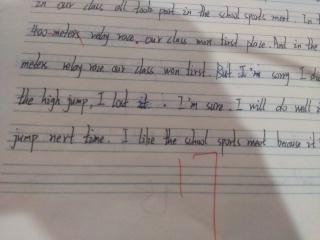 in our class all took part in the school sports meet. In t
400-meters relay race. our class won first place. And in the
meters relay race our class won first. But I'm sorry I d
the high jump, I lost it. I'm sure, I will do well i
jump next time. I like the school sports meet because it